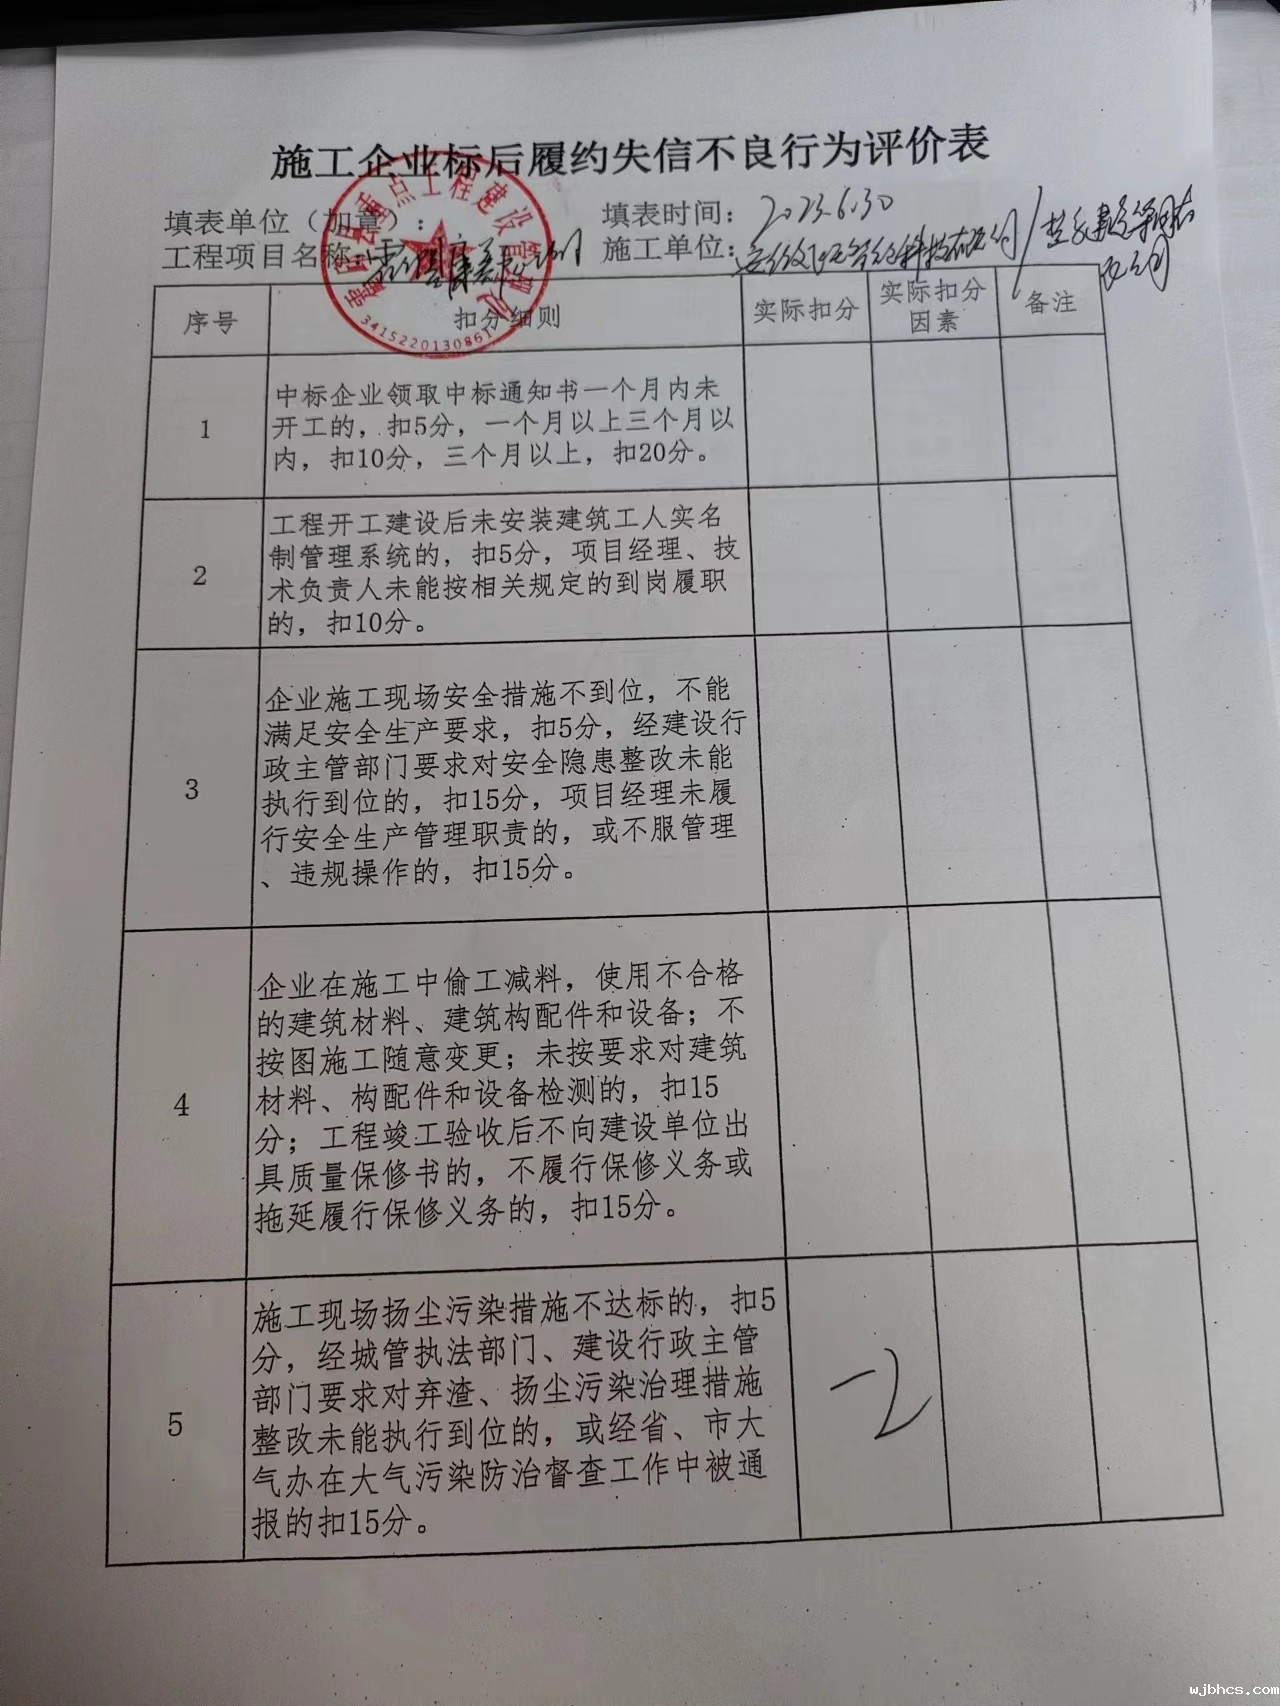 施工企业标后履约失信不良行为评价表
填表单位（加章）：
填表时间：2023.6.30
工程项目名称：
施工单位：
重点工程建设管理
3415220130861
序号
扣分细则
实际扣分
实际扣分
因素
备注
1
中标企业领取中标通知书一个月内未
开工的，扣5分，一个月以上三个月以
内，扣10分，三个月以上，扣20分。
2
工程开工建设后未安装建筑工人实名
制管理系统的，扣5分，项目经理、技
术负责人未能按相关规定的到岗履职
的，扣10分。
3
企业施工现场安全措施不到位，不能
满足安全生产要求，扣5分，经建设行
政主管部门要求对安全隐患整改未能
执行到位的，扣15分，项目经理未履
行安全生产管理职责的，或不服管理
、违规操作的，扣15分。
4
企业在施工中偷工减料，使用不合格
的建筑材料、建筑构配件和设备；不
按图施工随意变更；未按要求对建筑
材料、构配件和设备检测的，扣15
分；工程竣工验收后不向建设单位出
具质量保修书的，不履行保修义务或
拖延履行保修义务的，扣15分。
5
施工现场扬尘污染措施不达标的，扣5
分，经城管执法部门、建设行政主管
部门要求对弃渣、扬尘污染治理措施
整改未能执行到位的，或经省、市大
气办在大气污染防治督查工作中被通
报的扣15分。
-2
wjbhcs.com